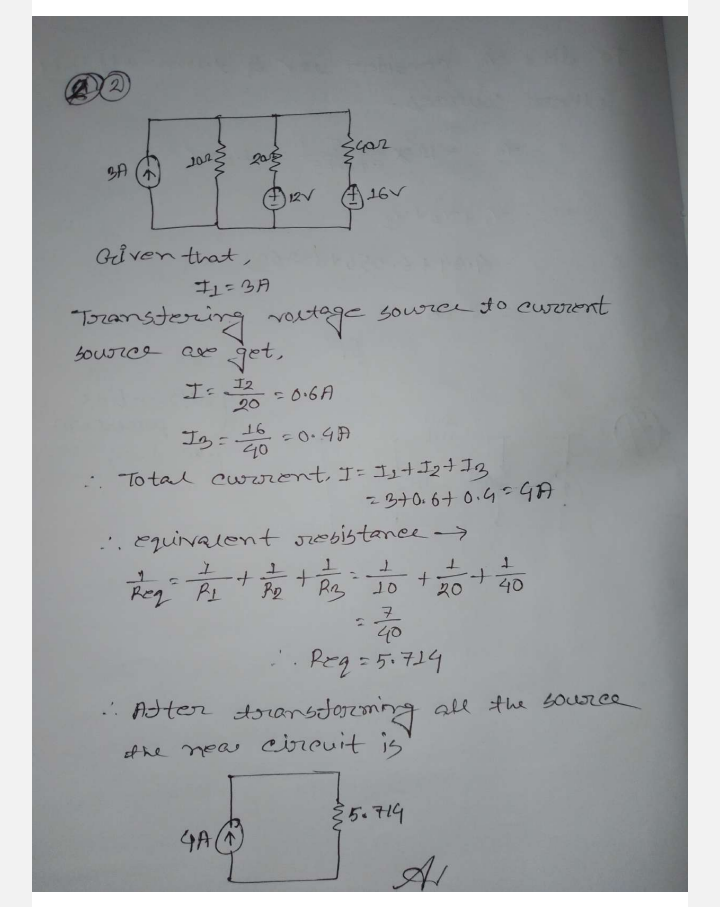 2
3A
10Ω
20Ω
12V
40Ω
16V
Given that,
I1 = 3A
Transfering voltage source to current
source we get,
I = I2/20 = 0.6A
I3 = 16/40 = 0.4A
∴ Total current, I = I1 + I2 + I3
= 3+0.6+0.4 = 4A
∴ equivalent resistance →
1/Req = 1/R1 + 1/R2 + 1/R3 = 1/10 + 1/20 + 1/40
= 7/40
∴ Req = 5.714
∴ After transforming all the source
the new circuit is
4A
5.714